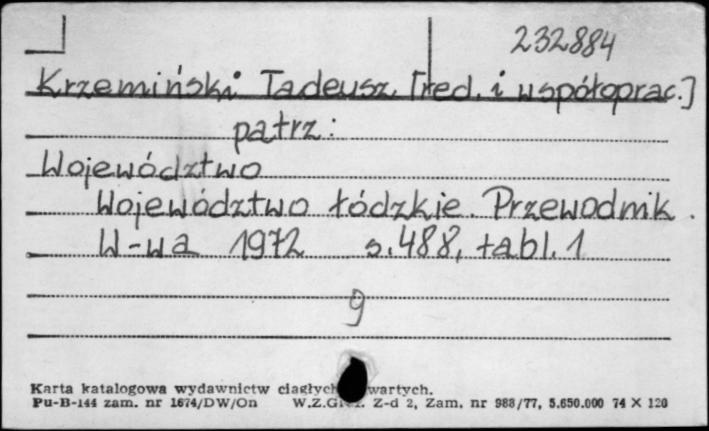 232884
Krzemiński Tadeusz. [red. i współoprac.]
patrz:
Województwo
Województwo łódzkie. Przewodnik.
W-wa 1972 s. 488, tabl. 1
9
Karta katalogowa wydawnictw ciągłych
Pu-B-144 zam. nr 1674/DW/On W.Z.Gr. Z-d 2, Zam. nr 988/77, 5.650.000 74 X 120